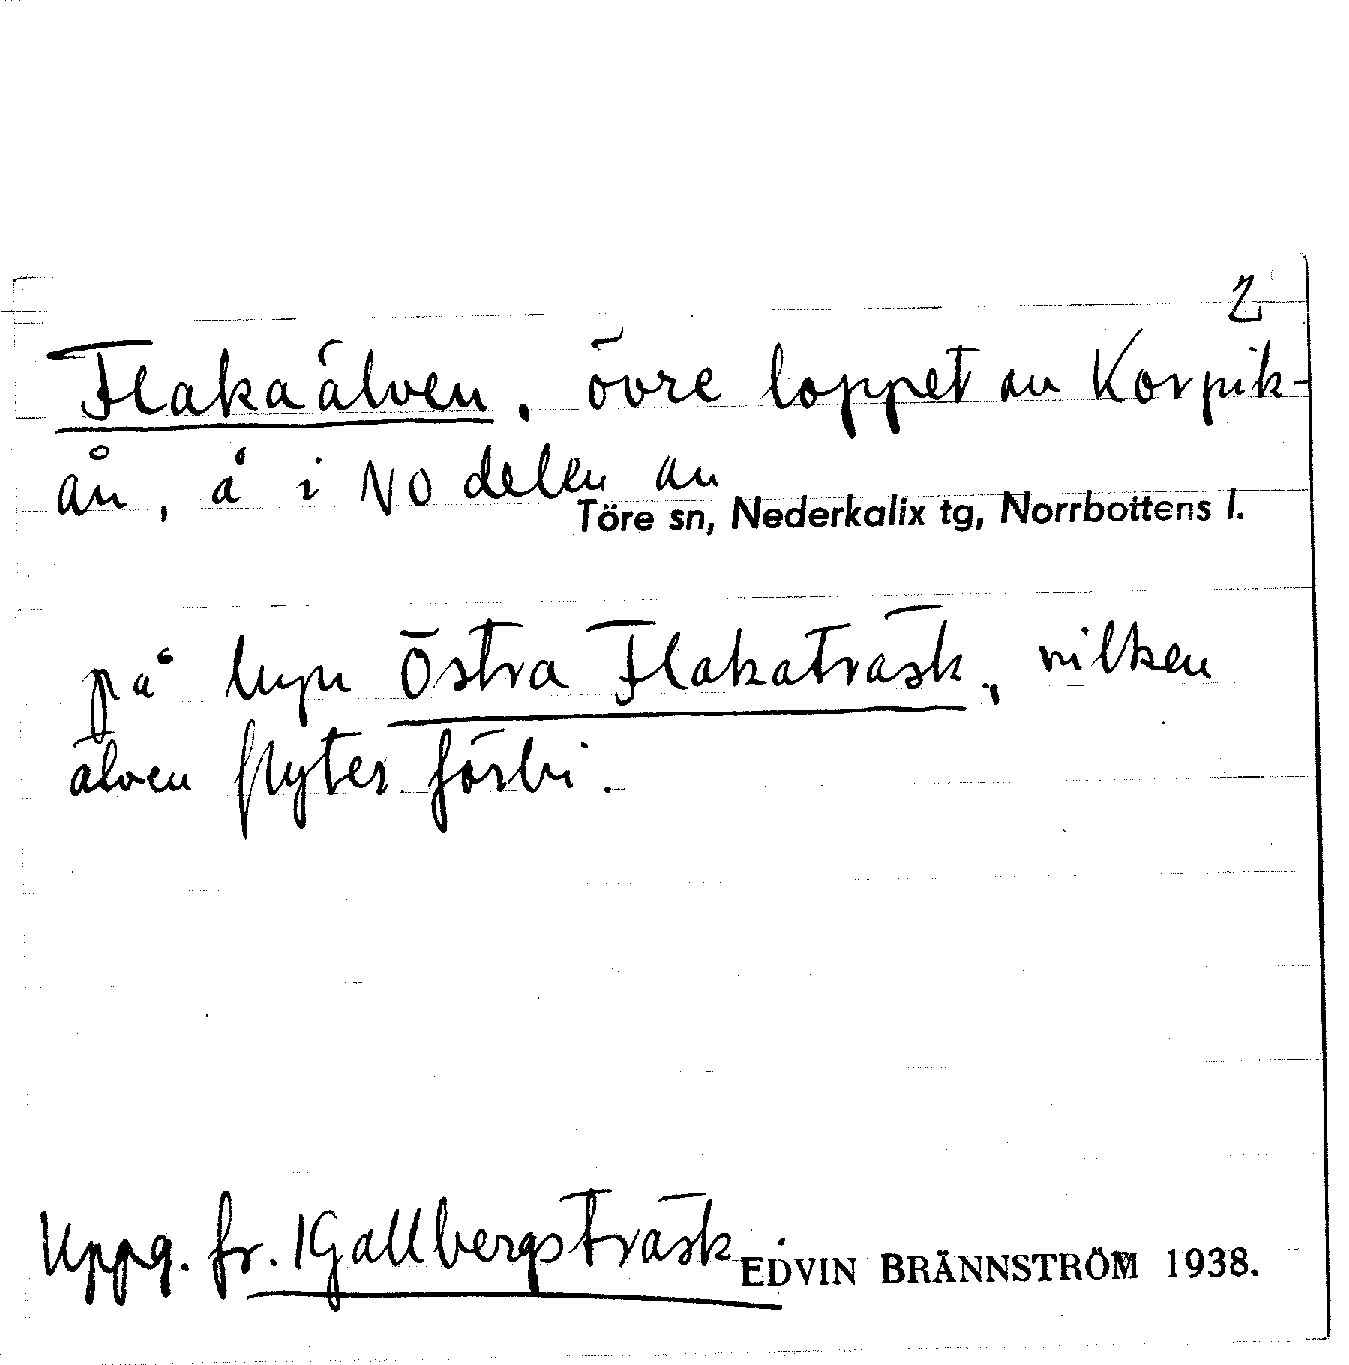 2
Flakaälven, övre loppet av Korpik-
ån, å i NO delen av
Töre sn, Nederkalix tg, Norrbottens l.
på byn Östra Flakaträsk, vilken
älven flyter förbi.
Uppg. fr. Gallbergsträsk
EDVIN BRÄNNSTRÖM 1938.